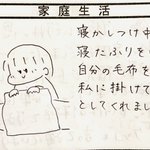 家庭生活
寝かしつけ中
寝たふりを
自分の毛布を
私に掛けて
としてくれまし